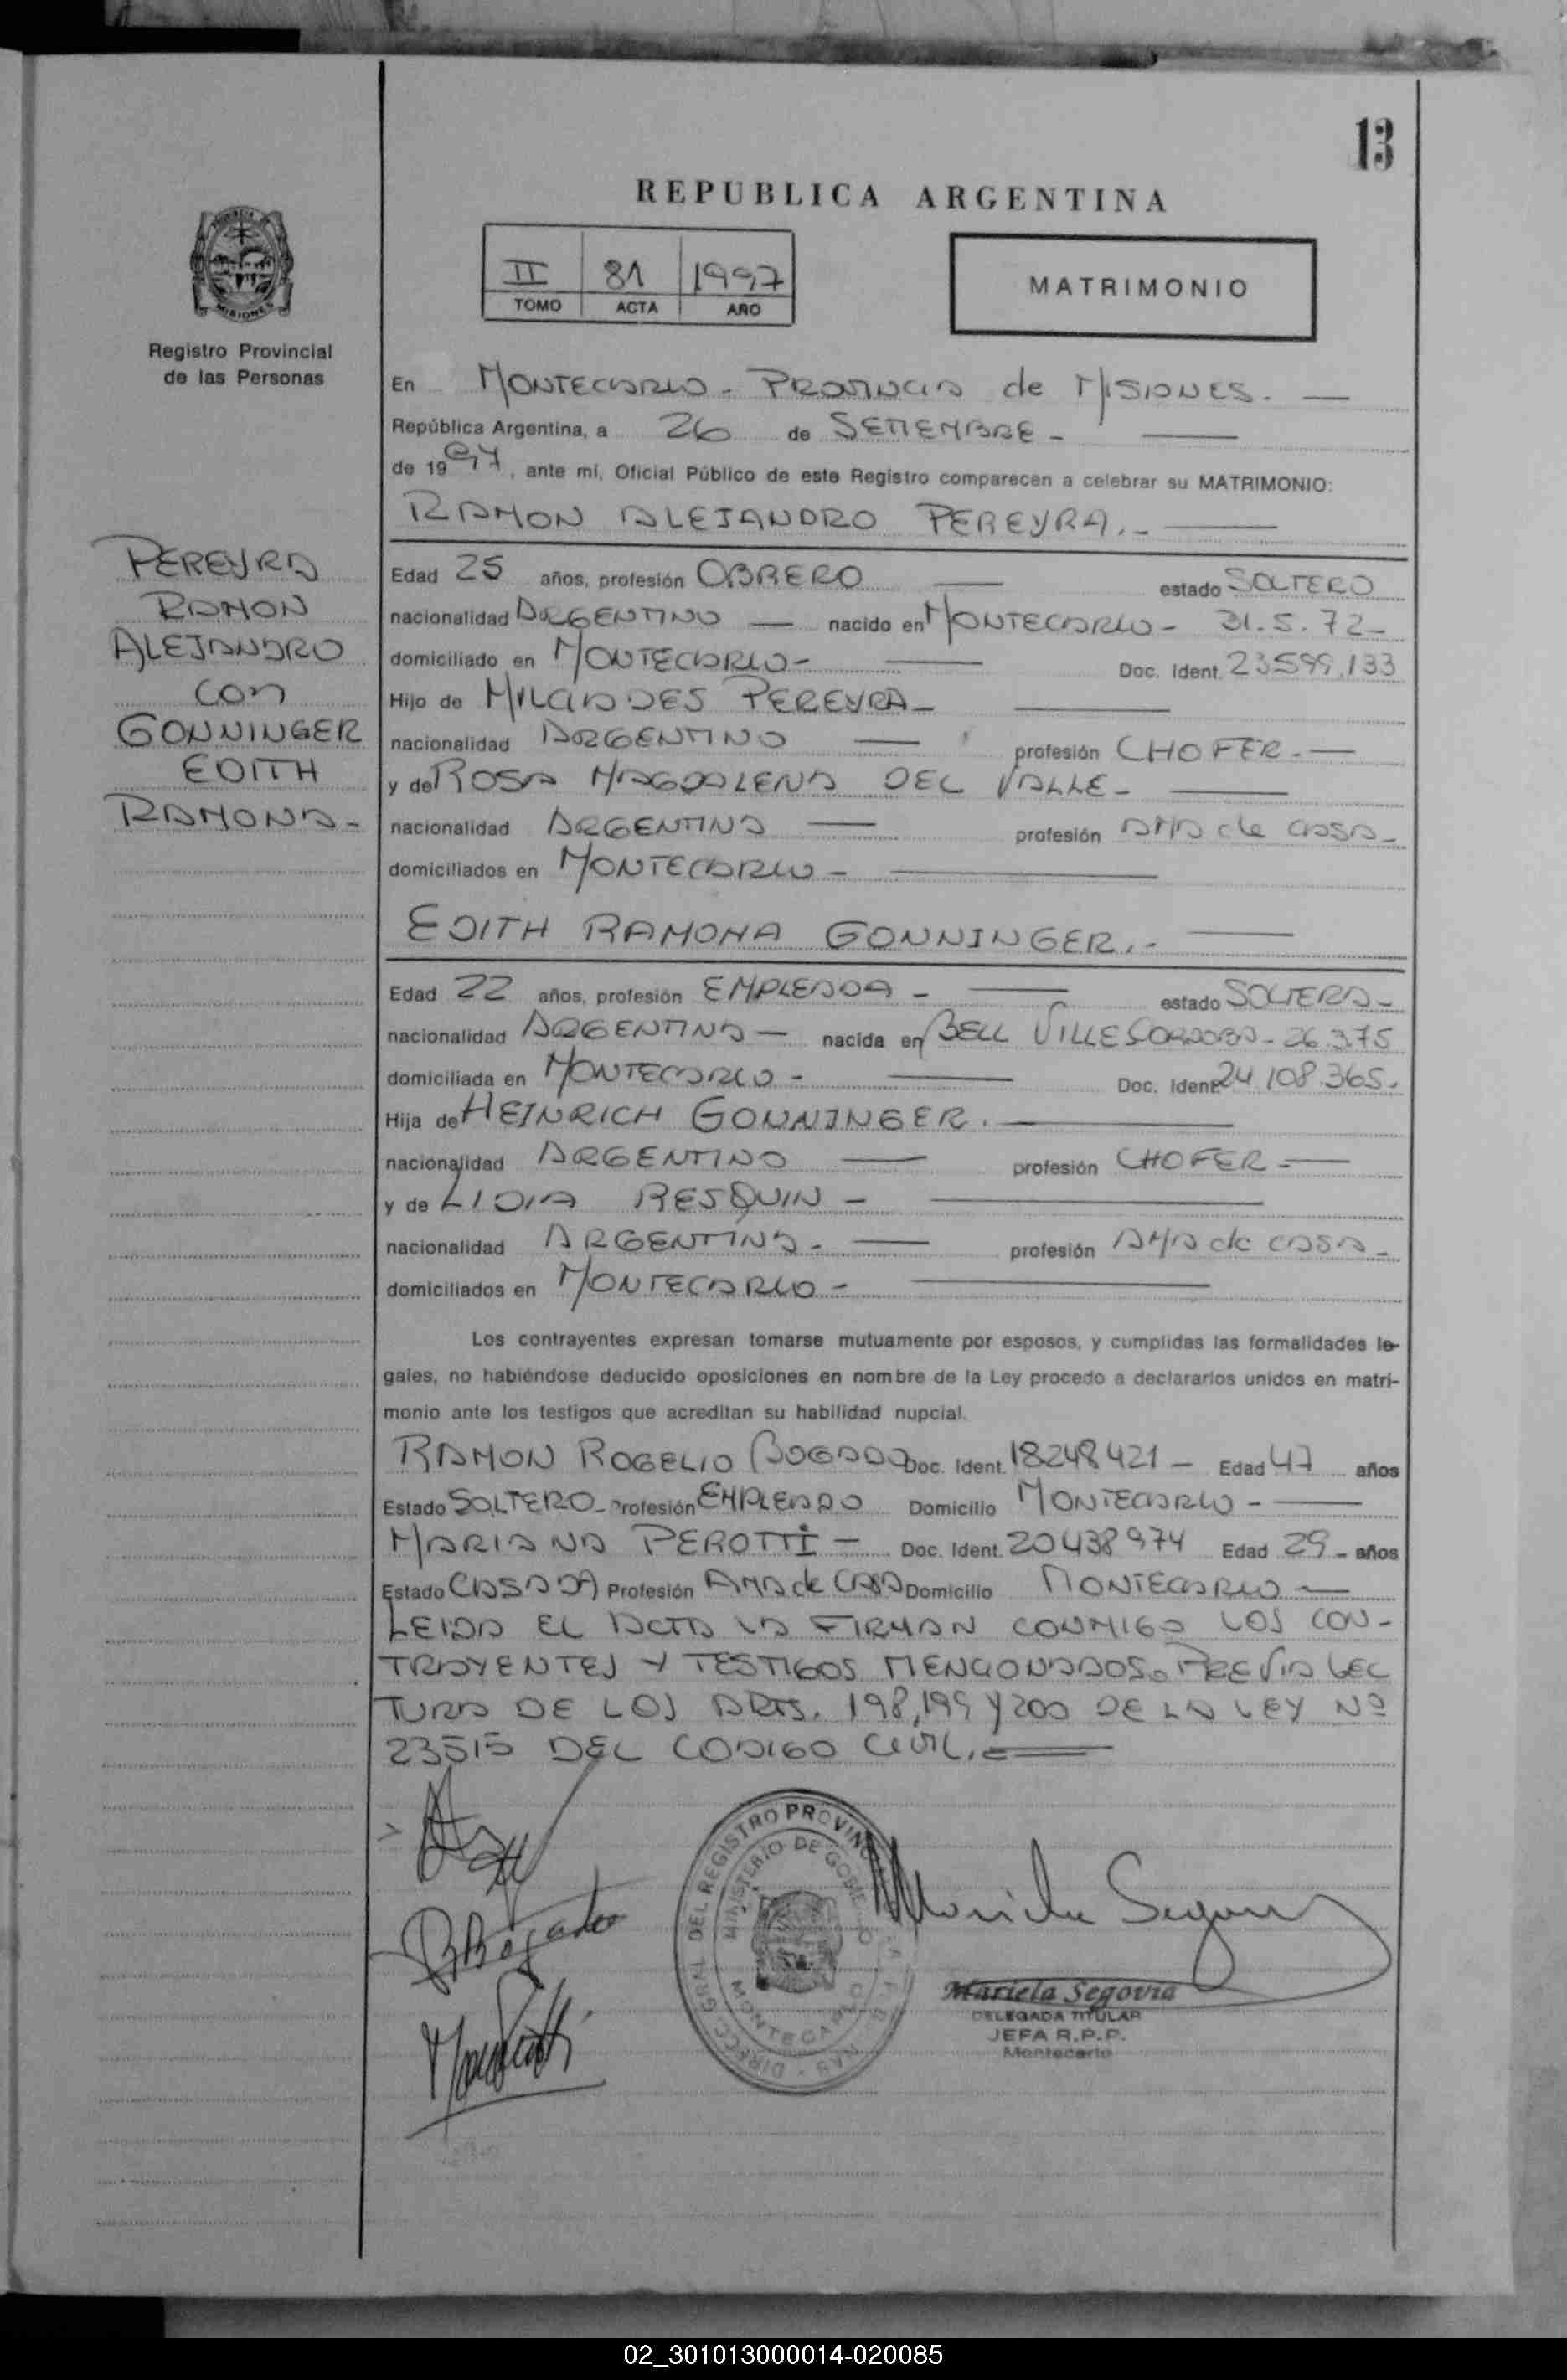 13
REPUBLICA ARGENTINA
II 81 1997
TOMO ACTA AÑO
MATRIMONIO
MISIONES
Registro Provincial
de las Personas
En MONTECARLO - PROVINCIA de MISIONES. —
República Argentina, a 26 de SETIEMBRE -
de 1997, ante mí, Oficial Público de este Registro comparecen a celebrar su MATRIMONIO:
RAMON ALEJANDRO PEREYRA.-
PEREYRA
RAMON
ALEJANDRO
con
GONNINGER
EDITH
RAMONA-
Edad 25 años, profesión OBRERO estado SOLTERO
nacionalidad ARGENTINO — nacido en MONTECARLO - 31.5.72-
domiciliado en MONTECARLO- Doc. Ident. 23.599.133
Hijo de MILCIADES PEREYRA-
nacionalidad ARGENTINO — profesión CHOFER.-
y de ROSA MAGDALENA DEL VALLE-
nacionalidad ARGENTINA — profesión AMA de CASA-
domiciliados en MONTECARLO-
EDITH RAMONA GONNINGER.-
Edad 22 años, profesión EMPLEADA - estado SOLTERA-
nacionalidad ARGENTINA — nacida en BELL VILLE CORDOBA - 26.3.75
domiciliada en MONTECARLO- Doc. Ident. 24.108.365.
Hija de HEINRICH GONNINGER.
nacionalidad ARGENTINO — profesión CHOFER-
y de LIDIA RESQUIN -
nacionalidad ARGENTINA- profesión AMA de CASA-
domiciliados en MONTECARLO-
Los contrayentes expresan tomarse mutuamente por esposos, y cumplidas las formalidades le-
gales, no habiéndose deducido oposiciones en nombre de la Ley procedo a declararlos unidos en matri-
monio ante los testigos que acreditan su habilidad nupcial.
RAMON ROGELIO BOGADO Doc. Ident. 18248421 - Edad 47 años
Estado SOLTERO- Profesión EMPLEADO Domicilio MONTECARLO-
MARIANA PEROTTI - Doc. Ident. 20438974 Edad 29 - años
Estado CASADA Profesión AMA de CASA Domicilio MONTECARLO-
LEIDA EL ACTA LA FIRMAN CONMIGO LOS CON-
TRAYENTES Y TESTIGOS MENCIONADOS. PREVIA LEC
TURA DE LOS ARTS. 198,199 Y 200 DE LA LEY Nº
23515 DEL CODIGO CIVIL.=
DIRECC. GRAL DEL REGISTRO PROVINCIAL
MINISTERIO DE GOBIERNO
MONTECARLO
RBogado
Mariela Segovia
Mariela Segovia
DELEGADA TITULAR
JEFA R.P.P.
Montecarlo
02_301013000014-020085